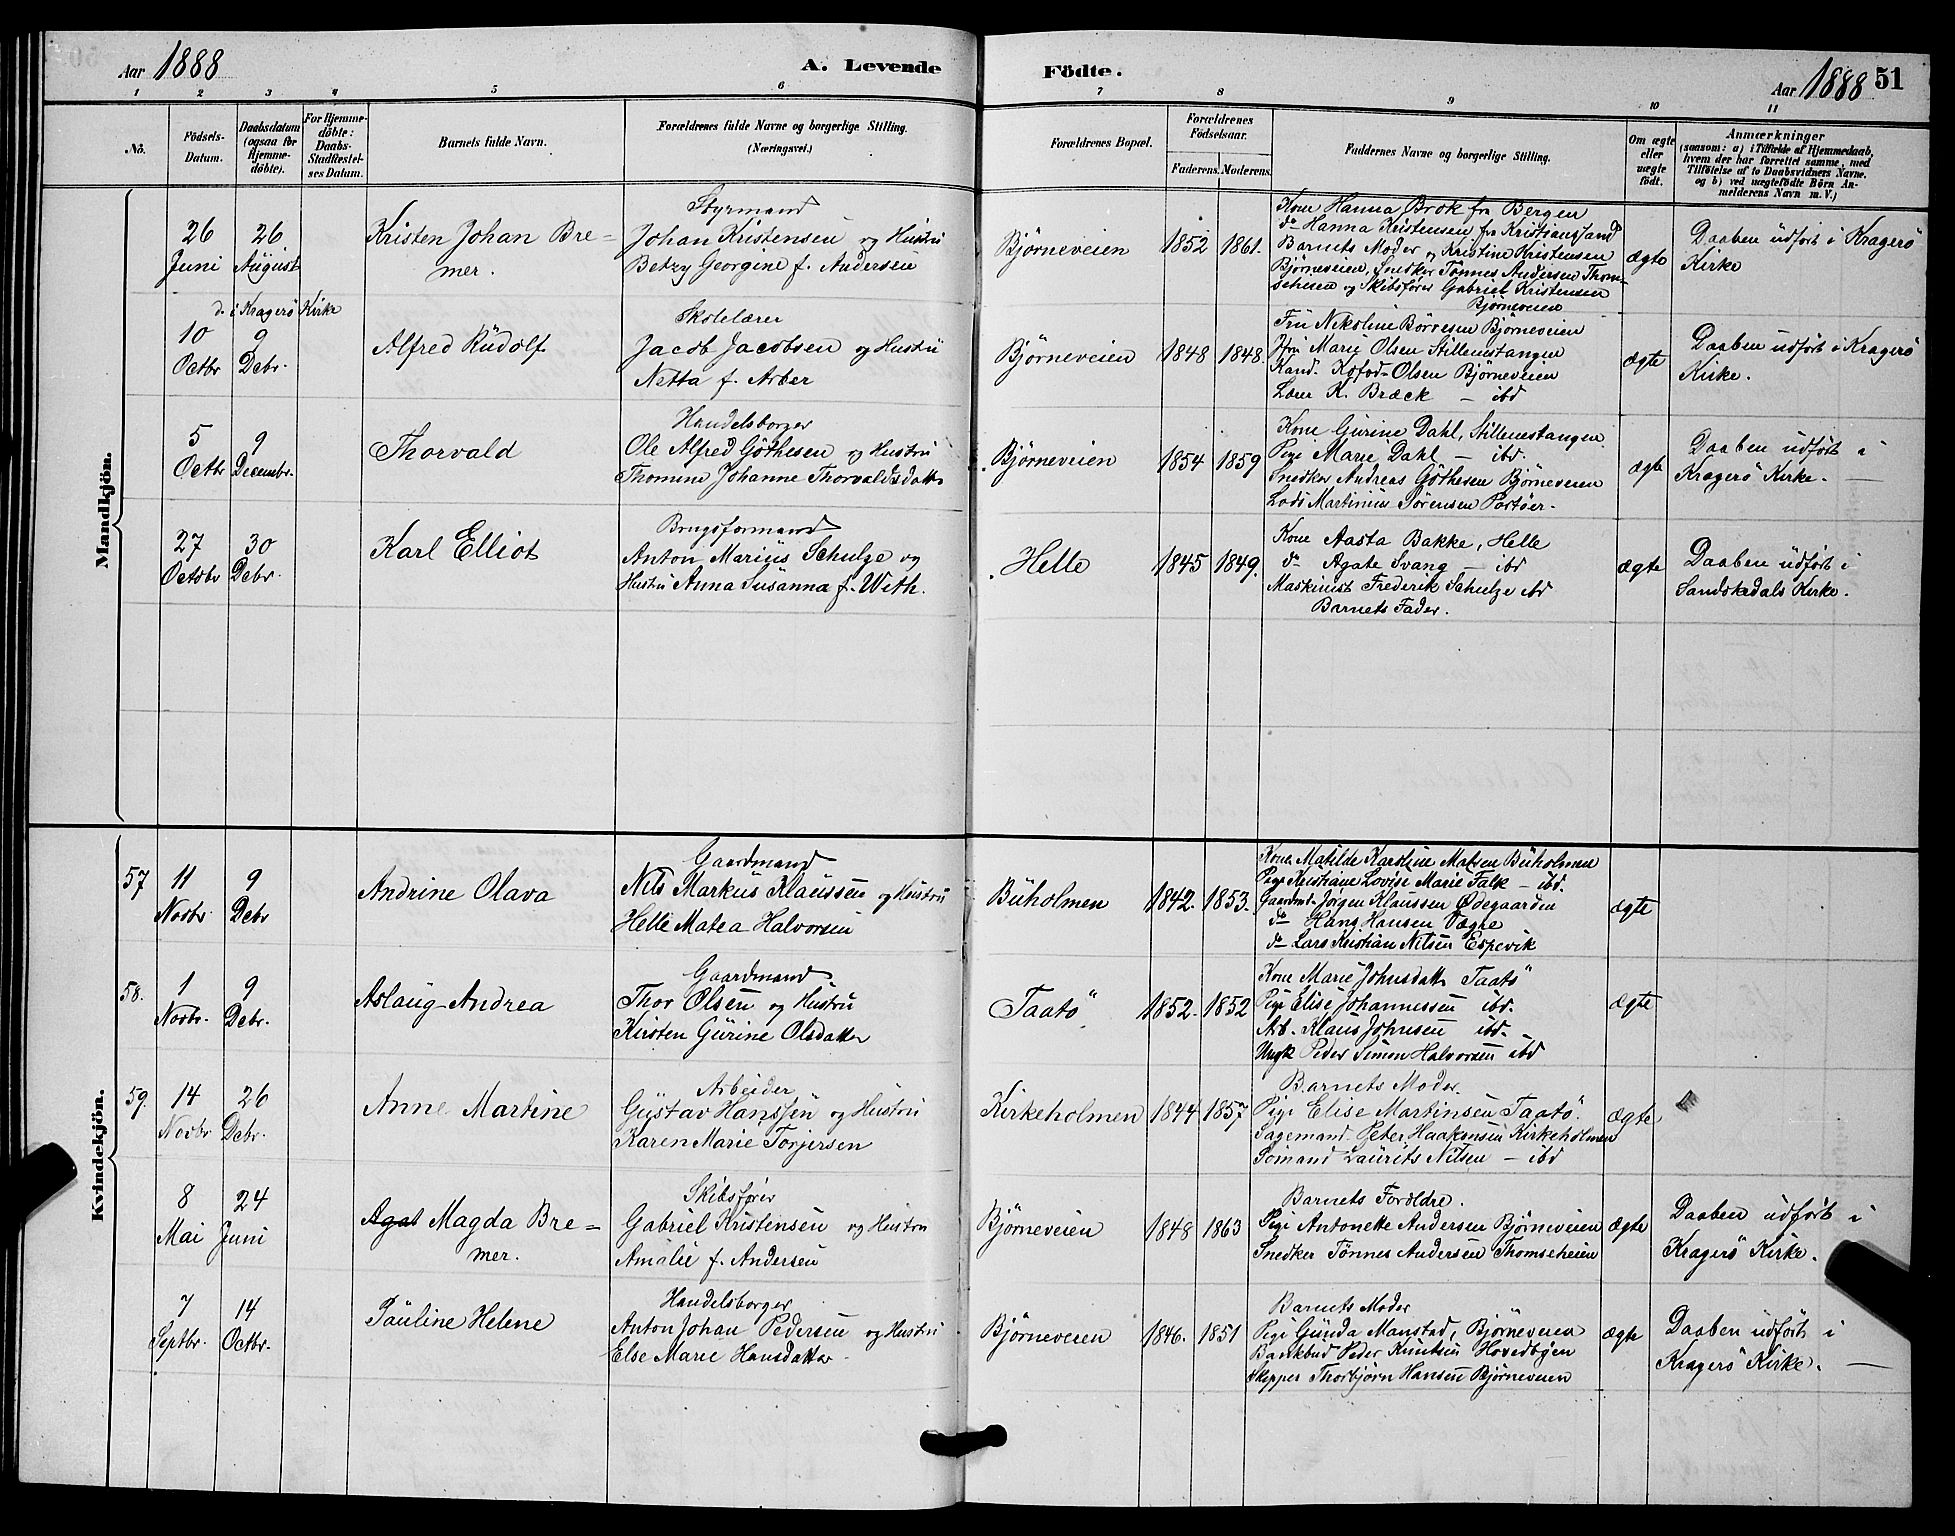 Aar 1888
A. Levende Födte.
Aar 1888 51
1 2 3 4 5 6 7 8 9 10 11
No.
Födsels-
Datum.
Daabsdatum
(ogsaa for
Hjemme-
döbte).
For Hjemme-
döbte:
Daabs-
Stadfæstel-
ses Datum.
Barnets fulde Navn.
Forældrenes fulde Navne og borgerlige Stilling.
(Næringsvei.)
Forældrenes Bopæl.
Forældrenes
Födselsaar.
Faderens. Moderens.
Faddernes Navne og borgerlige Stilling.
Om ægte
eller
uægte
födt.
Anmærkninger
(saasom: a) i Tilfælde af Hjemmedaab,
hvem der har forrettet samme, med
Tilföielse af to Daabsvidners Navne.
og b) ved uægtefödte Börn An-
melderens Navn m. V.)
Mandkjön.
26
Juni
26
August
d. i Kragerö Kirke
Kristen Johan Bre-
mer.
Styrmand
Johan Kristensen og Hustru
Betzy Georgine f. Andersen
Bjørneveien 1852 1861.
Kone Hanna Brok fra Bergen
do Hanna Kristensen fra Kristianssand
Barnets Moder og Kristine Kristensen
Bjørneveien, Snedker Tønnes Andersen Thom-
seheien og Skibsfører Gabriel Kristensen
Bjørneveien
ægte
Daaben udført i Kragerö
Kirke
10
Octbr
9
Debr.
Alfred Rudolf
Skolelærer
Jacob Jacobsen og Hustru
Netta f. Arber
Bjørneveien 1848 1848.
Fru Nikoline Börresen Bjørneveien
Jfru Marie Olsen Stillenstangen
Kand. Kofod-Olsen Bjørneveien
Lærer K. Bræck — ibd
ægte
Daaben udført i Kragerö
Kirke.
5
Octbr
9
Decembr.
Thorvald
Handelsborger
Ole Alfred Göthesen og Hustru
Thomine Johanne Thorvaldsdatter
Bjørneveien 1854 1859
Kone Gurine Dahl, Stillenstangen
Pige Marie Dahl — ibd.
Snedker Andreas Göthesen Bjørneveien
Lods Martinius Sörensen Portöer.
ægte
Daaben udført i
Kragerö Kirke. —
27
Octobr
30
Debr.
Karl Elliot
Brugsformand
Anton Marius Schulze og
Hustru Anna Susanna f. With.
Helle 1845 1849.
Kone Aasta Bakke, Helle
do Agate Svang — ibd
Maskinist Frederik Schulze ibd
Barnets Fader.
ægte
Daaben udført i
Sandøkedals Kirke.
Kvindekjön.
57
11
Novbr
9
Debr
Andrine Olava
Gaardmand
Nils Markus Klaussen og Hustru
Helle Matea Halvorsen
Buholmen 1842. 1853.
Kone Matilde Karoline Matsen Buholmen
Pige Kristiane Lovise Marie Falk — ibd.
Gaardmd. Jörgen Klaussen Ødegaarden
do Hans Hansen
do Lars Kristian Nilsen Espevik
ægte
58.
1
Novbr.
9
Debr.
Aslaug Andrea
Gaardmand
Thor Olsen og Hustru
Kirsten Gurine Olsdatter
Taatö 1852. 1852
Kone Marie Johnsdatter Taatö
Pige Elise Johannessen ibd.
Arb. Klaus Johnsen ibd.
Ungk Peder Simon Halvorsen ibd
ægte
59.
14
Novbr
26
Debr.
Anne Martine
Arbeider
Gustav Hanssen og Hustru
Karen Marie Torjersen
Kirkeholmen 1844 1857
Barnets Moder.
Pige Elise Martinsen Taatö.
Sagemand Peter Haakonsen Kirkeholmen
Sömand Laurits Nilsen — ibd
ægte
8
Mai
24
Juni
Agat Magda Bre-
mer.
Skibsfører
Gabriel Kristensen og Hustru
Amalie f. Andersen
Bjørneveien 1848 1863
Barnets Forældre.
Pige Antonette Andersen Bjørneveien
Snedker Tönnes Andersen Thomseheien
ægte
Daaben udført i
Kragerö Kirke.
7
Septbr.
14
Octbr.
Pauline Helene
Handelsborger
Anton Johan Pedersen og Hustru
Else Marie Hansdatter
Bjørneveien 1846. 1851
Barnets Moder
Pige Gunda Manstad, Bjørneveien
Bankbud Peder Knutsen Hovedbyen
Skipper Thorbjørn Hansen Bjørneveien
ægte
Daaben udført i
Kragerö Kirke. —